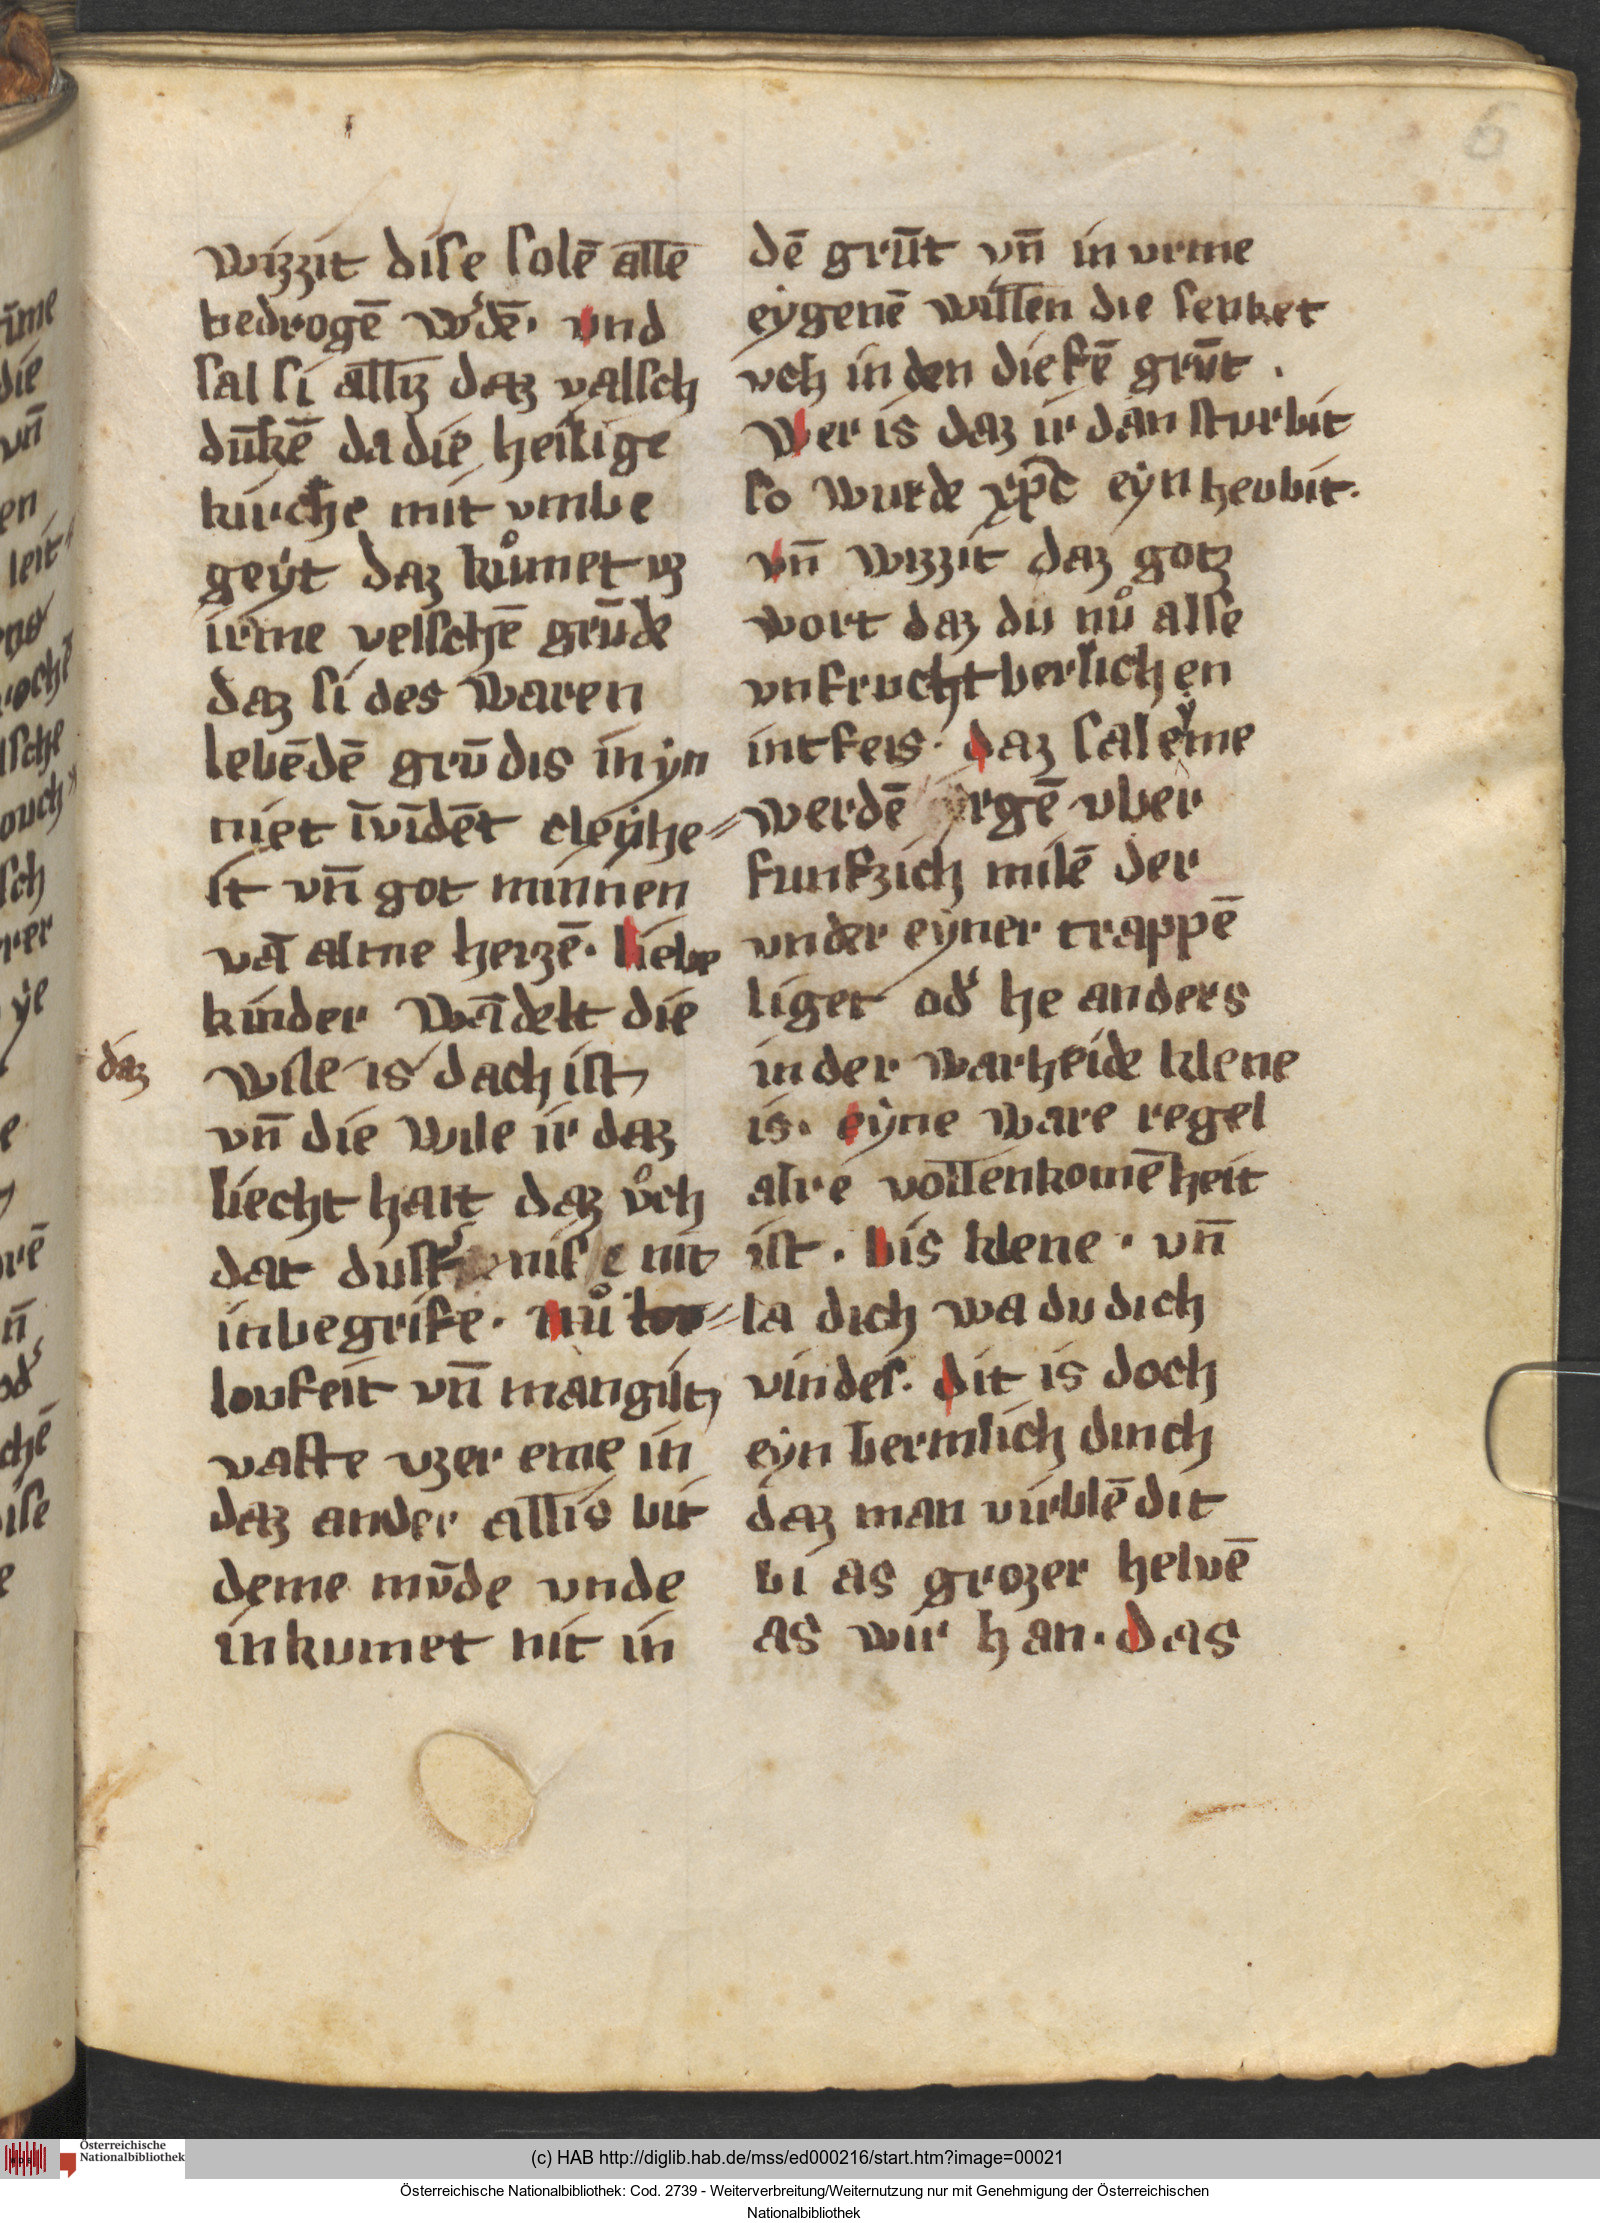 6
wizzit dise solē allē
bedrogē w'dē. vnd
sal si alliz daz valsch
dūkē da die heilige
kirche mit vmbe
geyt daz kůmet vz
irme velschē grūde
daz si des waren
lebēdē grūdis in yn
niet īvīdēt cleyhe=
it vn̄ got minnen
vā alme herzē. liebe
kinder wādelt die
daz
wile is dach ist
vn̄ die wile ir daz
liecht hait daz vͦch
dat dust' nisse nit
inbegrife. nů lov=
loufeit vn̄ mangilt
vaste vzer eme in
daz ander allis bit
deme mūde vnde
inkumet nit in
dē grūt vn̄ in vrme
eygenē willen die senket
vch in den diefē grūt .
Wer is daz ir dan sturbit
so wurde xpc eyn heubit.
vn̄ wizzit daz gotz
wort daz du nů alse
vnfruchtberlichen
intfeis. daz sal eyme
werdē vrgē vber
funfzich milē der
vnder eyner trappē
liget od' he anders
in der warheide klene
is. eyne ware regel
alre vollenkomēheit
ist. bis klene. vn̄
la dich wa du dich
vindes. dit is doch
eyn bermlich dinch
daz man virblēdit
bi as grozer heluē
as wir han. das
(c) HAB http://diglib.hab.de/mss/ed000216/start.htm?image=00021
Österreichische
Nationalbibliothek
Österreichische Nationalbibliothek: Cod. 2739 - Weiterverbreitung/Weiternutzung nur mit Genehmigung der Österreichischen
Nationalbibliothek